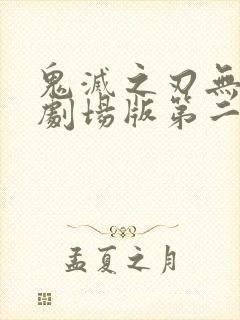 鬼滅之刃無
劇場版第二
孟夏之月